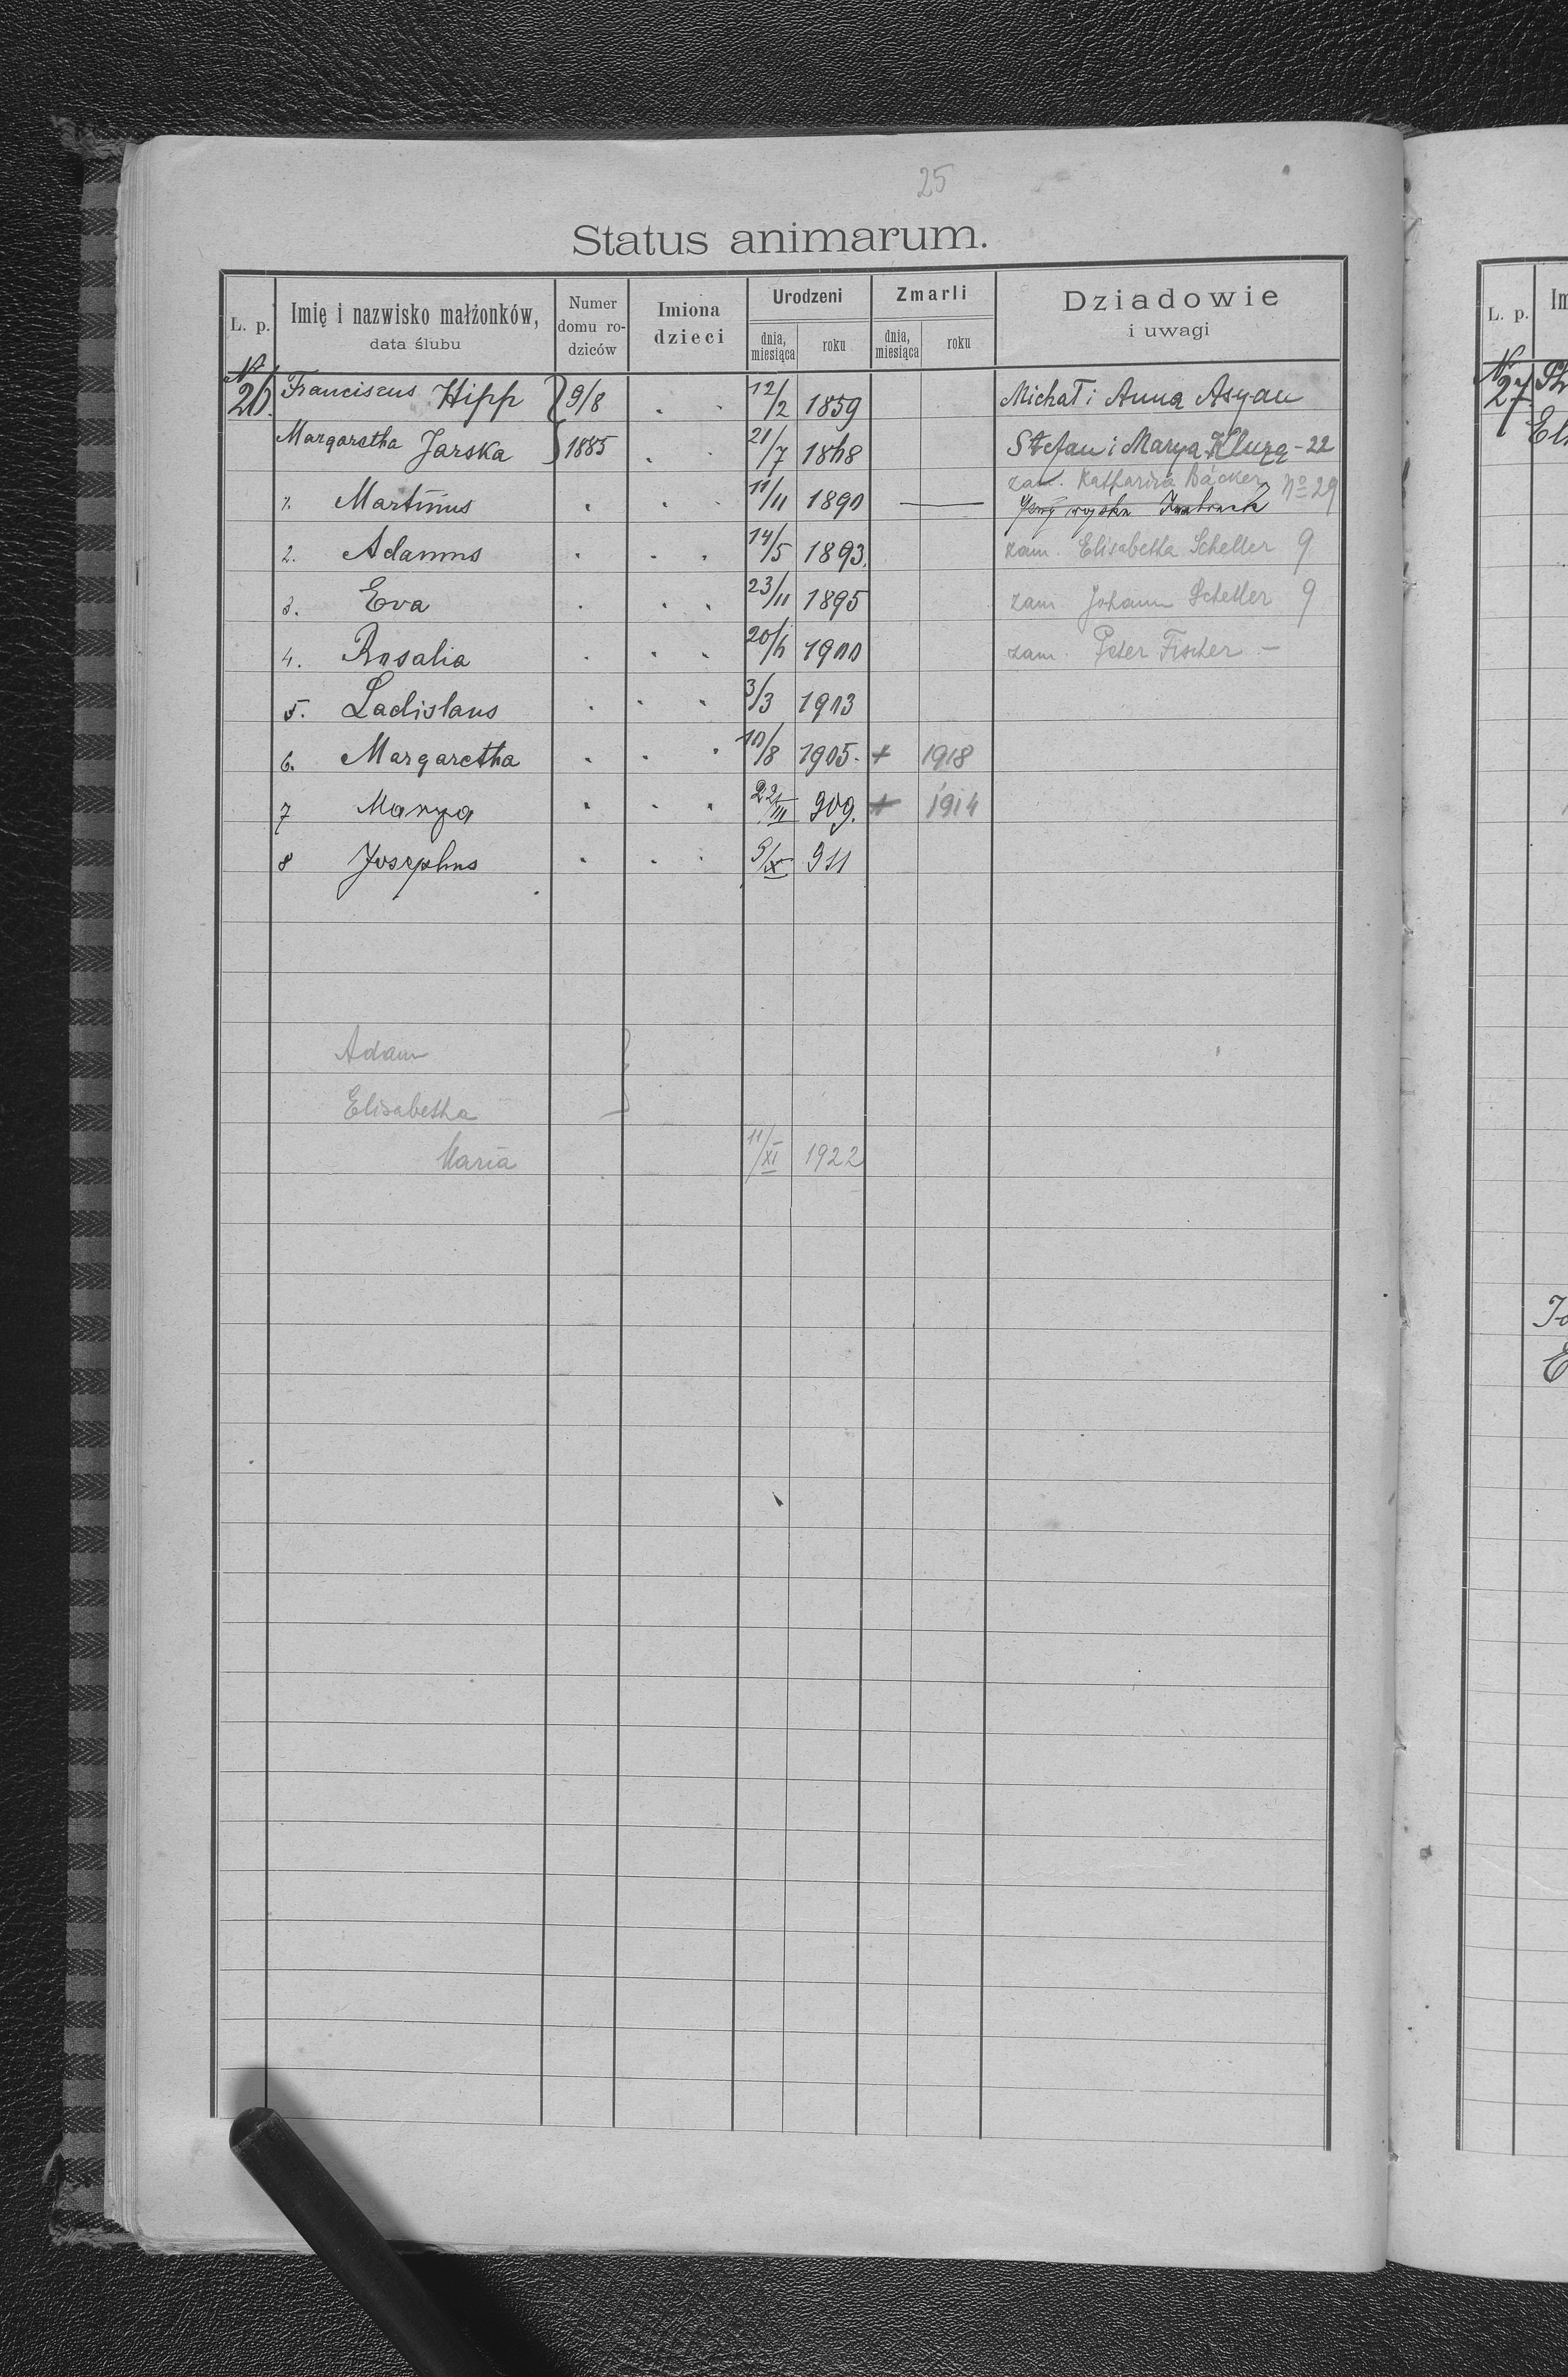 25
Status animarum.
L. p. Imię i nazwisko małżonków, data ślubu Numer domu rodziców Imiona dzieci Urodzeni dnia, miesiąca roku Zmarli dnia, miesiąca roku Dziadowie i uwagi
N 26. Franciscus Hipp } 9/8 12/2 1859 Michał i Anna Asyau
Margaretha Jarska } 1885 21/7 1868 Stefan i Marya Kluzą - 22
zam. Katharina Bäcker No 29
1. Martinus 11/11 1890 —
2. Adamus 14/5 1893. zam. Elisabetha Scheller 9
3. Eva 23/11 1895 zam. Johann Scheller 9
4. Rosalia 20/6 1900 zam. Peter Fischer –
5. Ladislaus 3/3 1903
6. Margaretha 10/8 1905. + 1918
7 Marya 22/III 909. + 1914
8 Josephus 9/X 911
Adam }
Elisabetha
Maria 11/XI 1922
L. p. Im
N 27